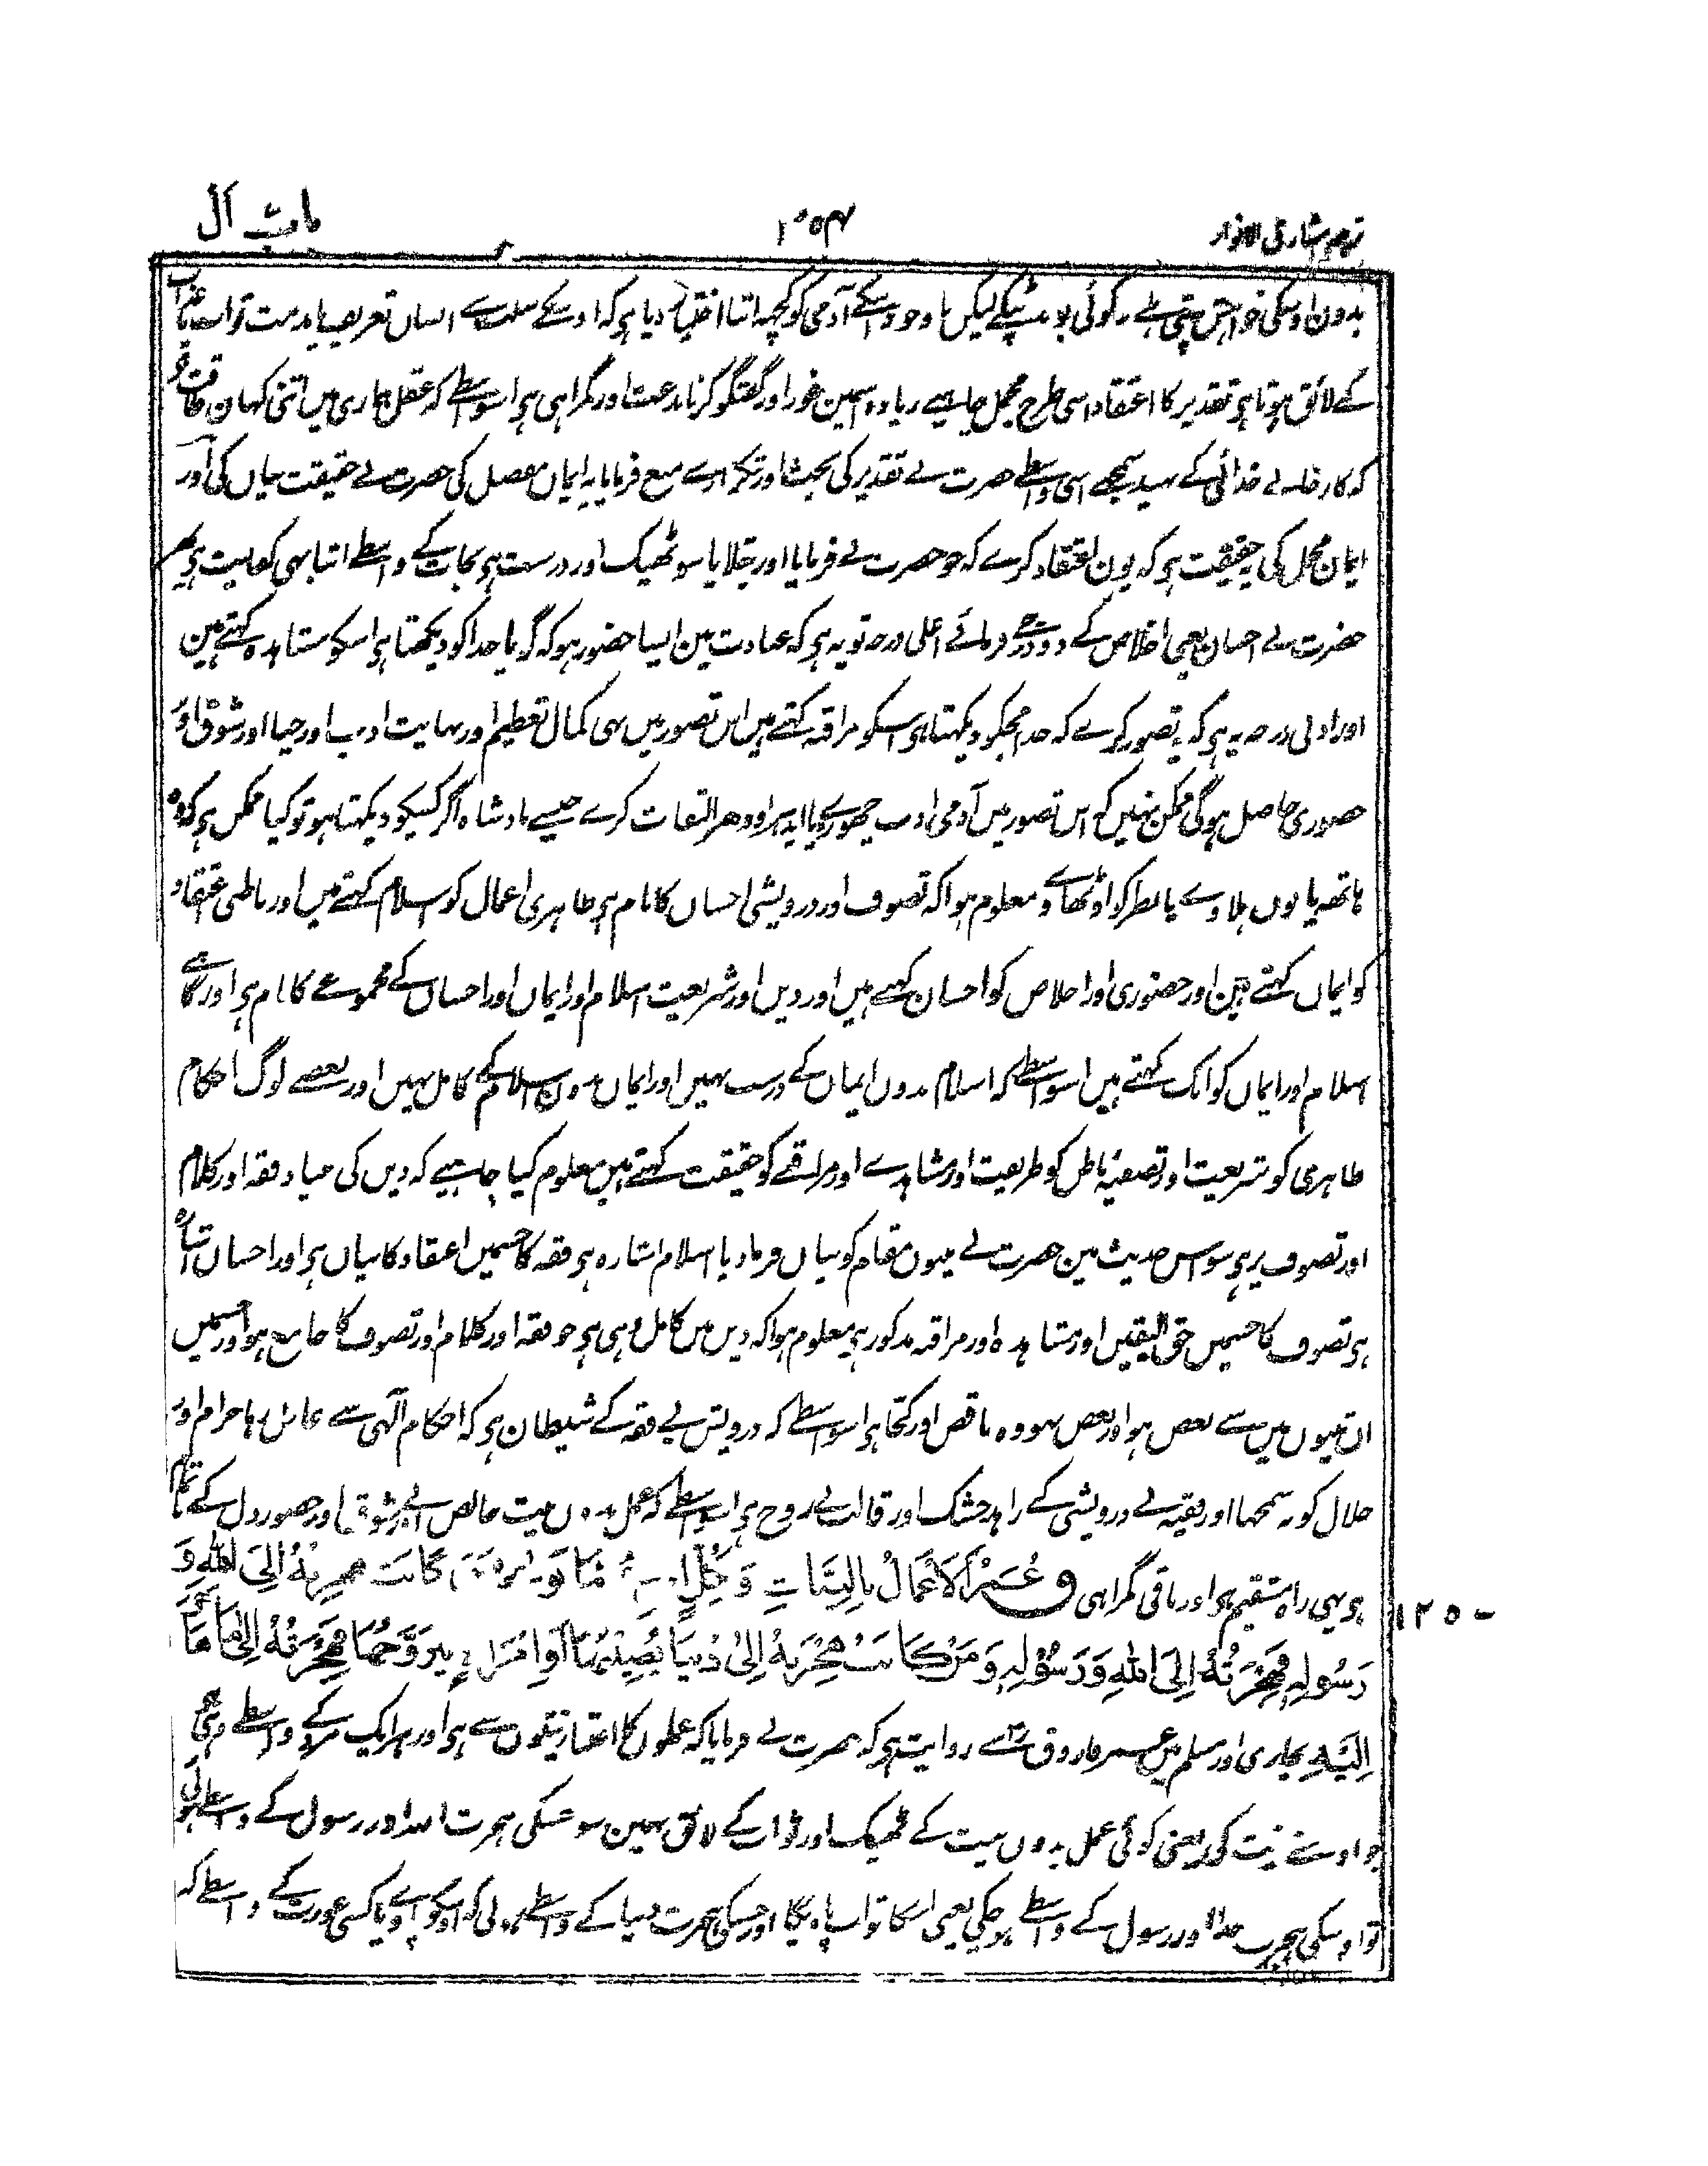 ترجمہ مشارق الانوار
باب ال
بدون اوسکی خواہش پتی ہلے نہ کوئی بوند ٹپکے لیکن باوجود اسکے آدمی کو کچھ اتنا اختیار دیا ہی کہ اوسکے سبب سے انسان تعریف یا مذمت ثواب یا عذاب
کے لائق ہوتا ہی تقدیر کا اعتقاد اسی طرح مجمل چاہیے زیادہ اسمین غور اور گفتگو کرنا بدعت اور گمراہی ہی اسواسطے کہ عقل ہماری میں اتنی کہان طاقت
کہ کارخانہ خدائی کے بھید سمجھے اسی واسطے حضرت نے تقدیر کی بحث اور تکرار سے منع فرمایا یہ ایمان مفصل کی حضرت نے حقیقت بیان کی اور
ایمان مجمل کی حقیقت ہی کہ یون اعتقاد کرے کہ جو حضرت نے فرمایا اور بتلایا سو ٹھیک اور درست ہی نجات کے واسطے اتنا بھی کفایت ہی پھر
حضرت نے احسان یعنی اخلاص کے دو درجے فرمائے اعلی درجہ تو یہ ہی کہ عبادت مین ایسا حضور ہو کہ گویا خدا کو دیکھتا ہی اسکو مشاہدہ کہتے مین
اور ادنی درجہ یہ ہی کہ یہ تصور کرے کہ خدا مجکو دیکھتا ہی اسکو مراقبہ کہتے ہیں اس تصور میں بھی کمال تعظیم اور نہایت ادب اور حیا اور شوق اور
حضوری حاصل ہوگی ممکن نہیں کہ اس تصور میں آدمی ادب چھوڑے یا ایدہر اودھر التفات کرے جیسے بادشاہ اگر کسیکو دیکھتا ہو تو کیا ممکن ہی کہ وہ
ہاتھ پانوں ہلاوے یا نظر کو اوٹھاوے معلوم ہوا کہ تصوف اور درویشی احسان کا نام ہی ظاہری اعمال کو اسلام کہتے میں اور باطنی اعتقاد
کو ایمان کہتے ہین اور حضوری اور اخلاص کو احسان کہتے ہیں اور دین اور شریعت اسلام اور ایمان اور احسان کے مجموعے کا نام ہی اور گاہے
اسلام اور ایمان کو ایک کہتے ہیں اسواسطے کہ اسلام بدون ایمان کے درست نہیں اور ایمان بدون اسلام کے کامل نہیں اور بعضے لوگ احکام
ظاہری کو شریعت اور تصفیۂ باطن کو طریقت اور مشاہدے اور مراقبے کو حقیقت کہتے ہیں معلوم کیا چاہیے کہ دین کی بنیاد فقہ اور کلام
اور تصوف پر ہی سو اس حدیث مین حضرت نے تینوں مقام کو بیان فرمادیا اسلام اشارہ ہی فقہ کا جسمیں اعتقاد کا بیان ہی اور احسان اشارہ
ہی تصوف کا جسمیں حق الیقین اور مشاہدہ اور مراقبہ مذکور ہی معلوم ہوا کہ دین میں کامل وہی ہی جو فقہ اور کلام اور تصوف کا جامع ہو اور جسمیں
ان تینوں میں سے بعض ہو اور بعض نہو وہ ناقص اور کچا ہی اسواسطے کہ درویش بے فقہ کے شیطان ہی کہ احکام آلہی سے غافل رہا حرام اور
حلال کو نہ سمجھا اور فقیہ بے درویشی کے زاہد خشک اور قالب بے روح ہی اسواسطے کہ عمل بدون نیت خالص اور شوق اور حضور دل کے ناتمام
ہی یہی راہ مستقیم ہی اور باقی گمراہی ق عُمَرَ الْاَعْمَالُ بِالنِّيَّاتِ وَ لِكُلِّ امْرِئٍ مَا نَوٰى فَمَنْ كَانَتْ هِجْرَتُهُ اِلَى اللهِ وَ
۱۲۵۰
رَسُوْلِهٖ فَهِجْرَتُهُ اِلَى اللهِ وَرَسُوْلِهٖ وَمَنْ كَانَتْ هِجْرَتُهُ اِلٰى دُنْيَا يُصِيْبُهَا اَوِ امْرَاَةٍ يَتَزَوَّجُهَا فَهِجْرَتُهُ اِلٰى مَا هَاجَرَ
اِلَيْهِ بخاری اور مسلم میں عمر فاروق سے روایت ہی کہ حضرت نے فرمایا کہ عملوں کا اعتبار نیتوں سے ہی اور ہر ایک مرد کے واسطے وہی ہی
جو اوسنے نیت کی یعنی کوئی عمل بدون نیت کے ٹھیک اور ثواب کے لائق نہین سو جسکی ہجرت اللہ اور رسول کے واسطے ہوئی
تو اوسکی ہجرت خدا اور رسول کے واسطے ہو چکی یعنی اسکا ثواب پاویگا اور جسکی ہجرت دنیا کے واسطے ہوئی کہ اوسکو پاوے یا کسی عورت کے واسطے کہ